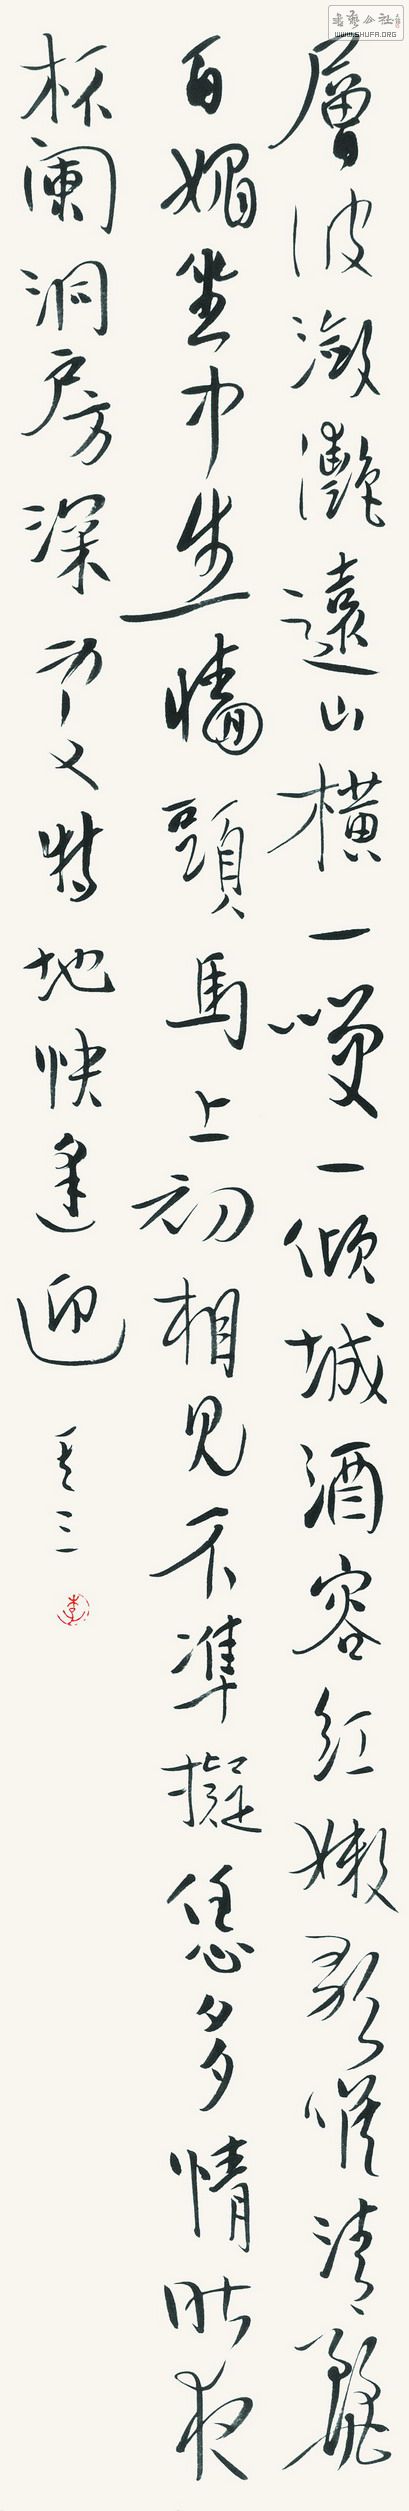 書藝公社
WWW.SHUFA.ORG
層波瀲灧遠山橫一笑一傾城酒容紅嫩歌喉清麗
百媚坐中生墻頭馬上初相見不準擬恁多情昨夜
杯闌洞房深處特地快逢迎